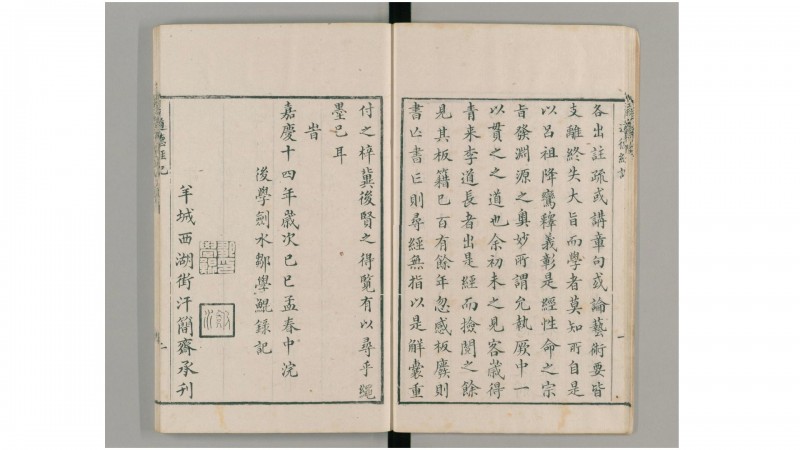 各出註疏或講章句或論藝術要皆
支離終失大旨而學者莫知所自是
以呂祖降鸞釋義彰是經性命之宗
旨發淵源之奧妙所謂允執厥中一
以貫之之道也余初未之見客歲得
青来李道長者出是經而撿閱之餘
見其板籍已百有餘年忽感板廢則
書亡書亡則尋經無指以是解囊重
付之梓冀後賢之得覽有以尋乎繩
墨已耳
旹
嘉慶十四年歲次己巳孟春中浣
後學劍水鄒學鯤錄記
羊城西湖街汗簡齋承刊
道德經記
一